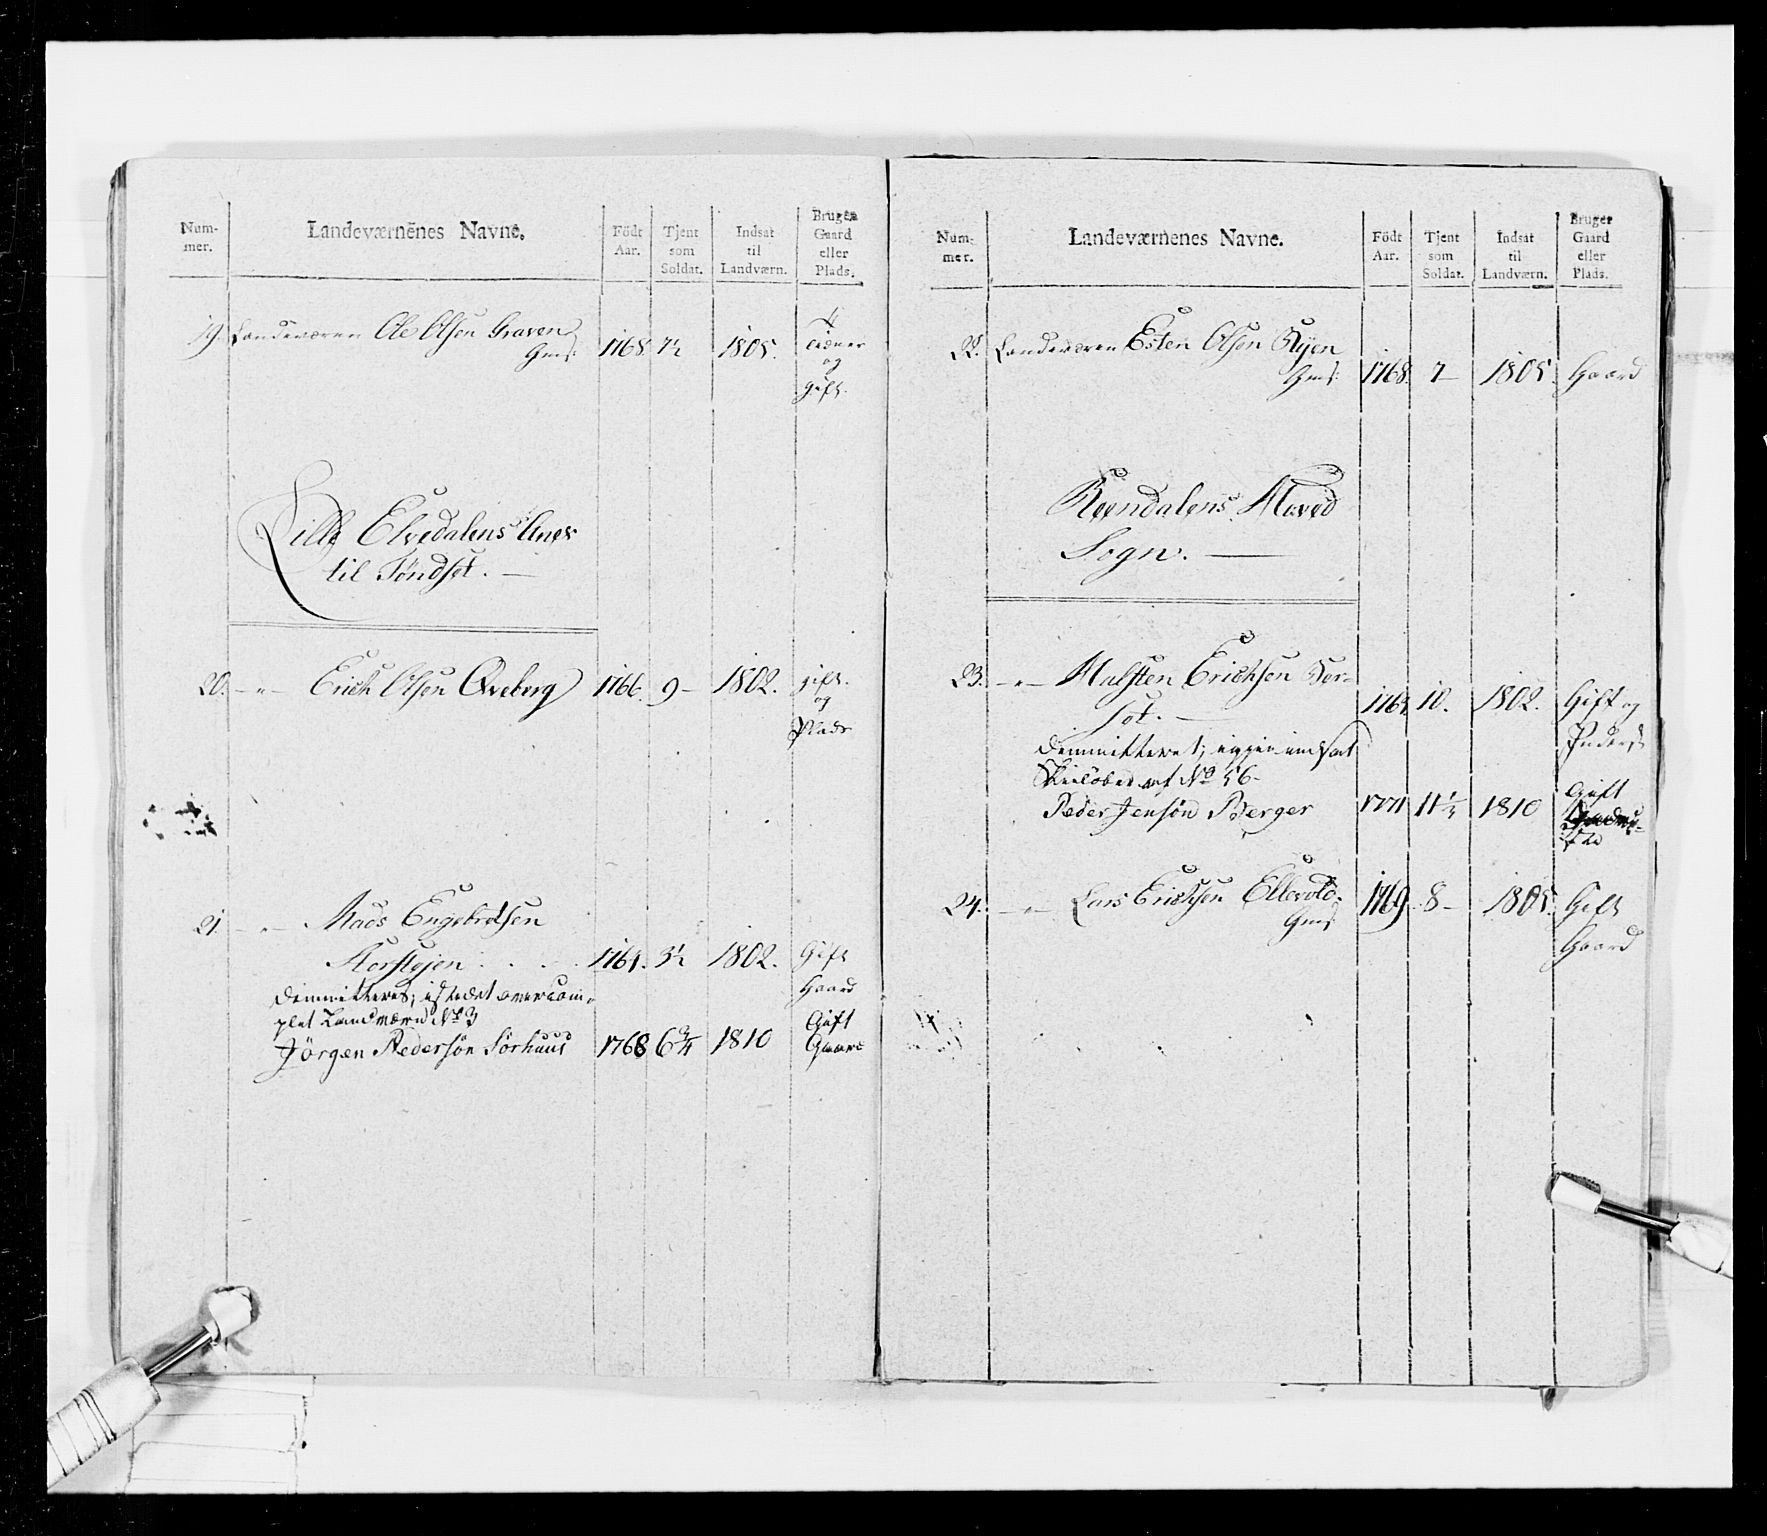 Num-
mer.
Landeværnenes Navne.
Födt
Aar.
Tjent
som
Soldat.
Indsat
til
Landværn.
Bruger
Gaard
eller
Plads.
19. Landeværen Ole Olsen Graven
Gms: 1768 7½ 1805.
Tidner
og
gift.
Lille Elvedalens Anex
til Tøndset. —
20. —"— Erich Olsen Qveberg 1766. 9 — 1802. gift.
og
Plads
21. —"— Mads Engebretsen
Storstejen . . . . 1764. 3½ 1802. Gift
Gaard
dimmitteret; istedet overcom-
plet Landværn No 3
Jörgen Pedersön Sörhuus 1768 6¾ 1810 Gift
Gaard
Num-
mer.
Landeværnenes Navne.
Födt
Aar.
Tjent
som
Soldat.
Indsat
til
Landværn.
Bruger
Gaard
eller
Plads.
22. Landeværen Esten Olsen Ryen
Gms: 1768. 7— 1805. Gaard
Reendalens Hoved
Sogn. —
23. —"— Halsten Erichsen Ber-
set. — 1764 10. 1802. Gift og
Inderst
dimmitteret; igjen indsat
Skielöber af No 56-
Peder Jensön Berger 1771 11½ 1810 Gift
24. —"— Lars Erichsen Ellevold. 1769. 8— 1805. Gift
Gms
Gaard